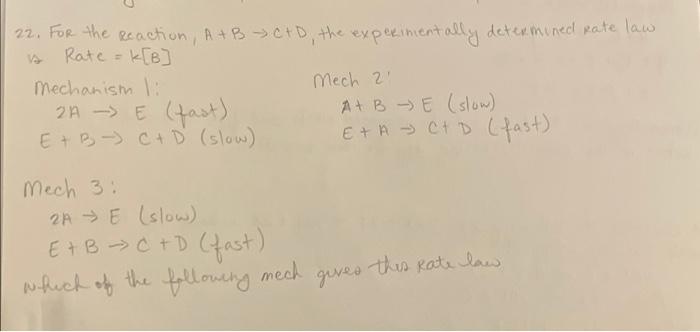 22. For the reaction, A + B → C + D, the experimentally determined rate law
is Rate = k[B]
Mechanism 1:
2A → E (fast)
E + B → C + D (slow)
Mech 2:
A + B → E (slow)
E + A → C + D (fast)
Mech 3:
2A → E (slow)
E + B → C + D (fast)
which of the following mech gives this rate law